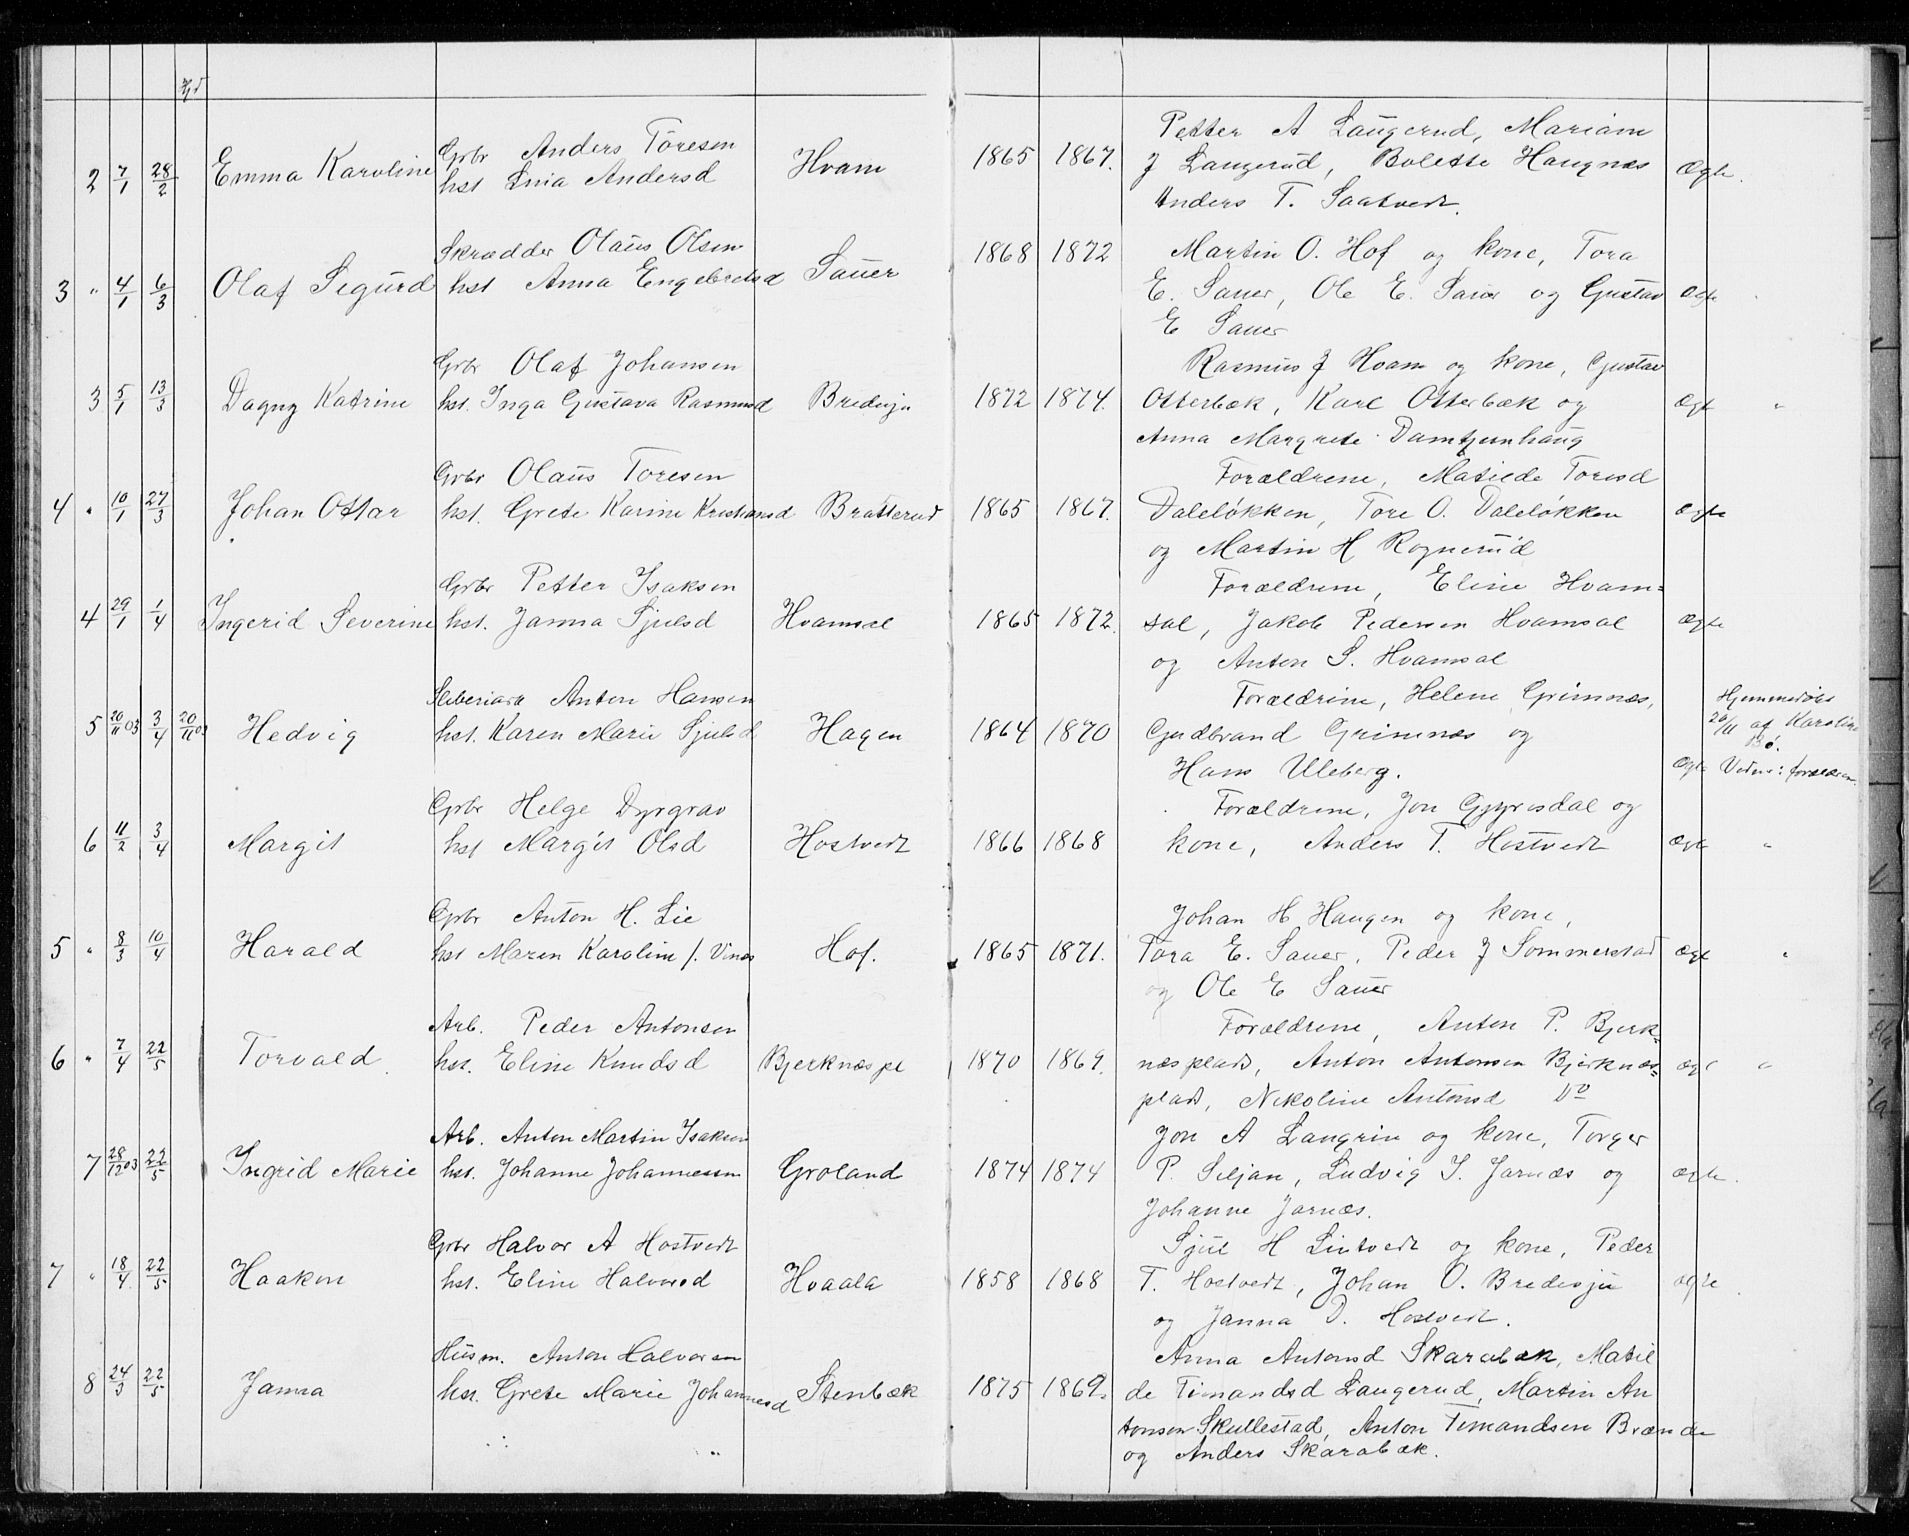 Petter A Laugerud, Mariam
2 7/1 28/2 Emma Karoline Grbr Anders Toresen Hvam 1865 1867. J Laugerud, Bolette Haugnæs Ægte.
hst Lina Andersd
Anders T. Saatvedt.
Skrædder Olaus Olsen Martin O. Hof og kone, Tora
3 " 4/1 6/3 Olaf Sigurd hst Anna Engebretsd Sauer 1868 1872 E. Sauer, Ole E. Sauer og Gustav Ægte
E Sauer
Grbr Olaf Johansen Rasmus J Hvam og kone, Gustav
3 5/1 13/3 Dagny Katrine hst. Inga Gustava Rasmusd Bredesju 1872 1874. Otterbæk, Karl Otterbæk og Ægte "
Anna Margrete Damtjernhaug
Grbr Olaus Toresen Forældrene, Matilde Toresd
4 " 10/1 27/3 Johan Ottar hst. Grete Karine Kristiansd Bratterud 1865 1867. Daleløkken, Tore O. Daleløkken Ægte
og Martin H Rognerud
Grbr Petter Isaksen Forældrene, Eline Hvam=
4 29/1 1/4 Ingerid Severine hst. Janna Sjulsd Hvamsal 1865 1872. sal, Jakob Pedersen Hvamsal Ægte
og Anton S. Hvamsal
Sliberiarb Anton Hansen Forældrene, Helene Grimnæs, Hjemmedøbt
5 20/11 03 3/4 20/11 03 Hedvig hst. Karen Marie Sjulsd Hagen 1864 1870 Gudbrand Grimnæs og 20/11 af Karoline
Bø.
Hans Uleberg. Ægte Vidner: forældrene
Grbr Helge Dyrgrav Forældrene, Jon Gjyvesdal og
6 11/2 3/4 Margit hst Margit Olsd Hostvedt 1866 1868 kone, Anders T. Hostvedt Ægte "
Grbr Anton H. Lie Johan H Haugen og kone,
5 " 8/3 10/4 Harald hst Maren Karoline f. Vinæs Hof. 1865 1871. Tora E. Sauer, Peder J Sommerstad Ægte "
og Ole E Sauer
Arb. Peder Antonsen Forældrene, Anton P. Bjerk=
6 " 7/4 22/5 Torvald hst. Eline Knudsd Bjerknæspl 1870 1869. næsplads, Anton Antonsen Bjerknæs= Ægte "
plads, Nikoline Antonsd Do
Arb. Anton Martin Isaksen Jon A Langrin og kone, Torger
7 28/12 03 22/5 Ingrid Marie hst. Johanne Johannessen Groland 1874 1874 P. Seljan, Ludvig I. Jarnæs og ægte.
Johanne Jarnæs.
Grbr Halvor A Hostvedt Sjul H Lintvedt og kone, Peder
7 " 18/4 22/5 Haakon hst. Eline Halvorsd Hvaala 1858 1868 T. Hostvedt, Johan O. Bredesju ægte
og Janna D. Hostvedt.
Husm. Anton Halvorsen Anna Antonsd Skarabæk, Matil
8 24/3 22/5 Janna hst. Grete Marie Johannesd Stenbæk 1875 1869. de Timandsd Laugerud, Martin An
tonsen Skullestad, Anton Timandsen Brænde
og Anders Skarabæk.